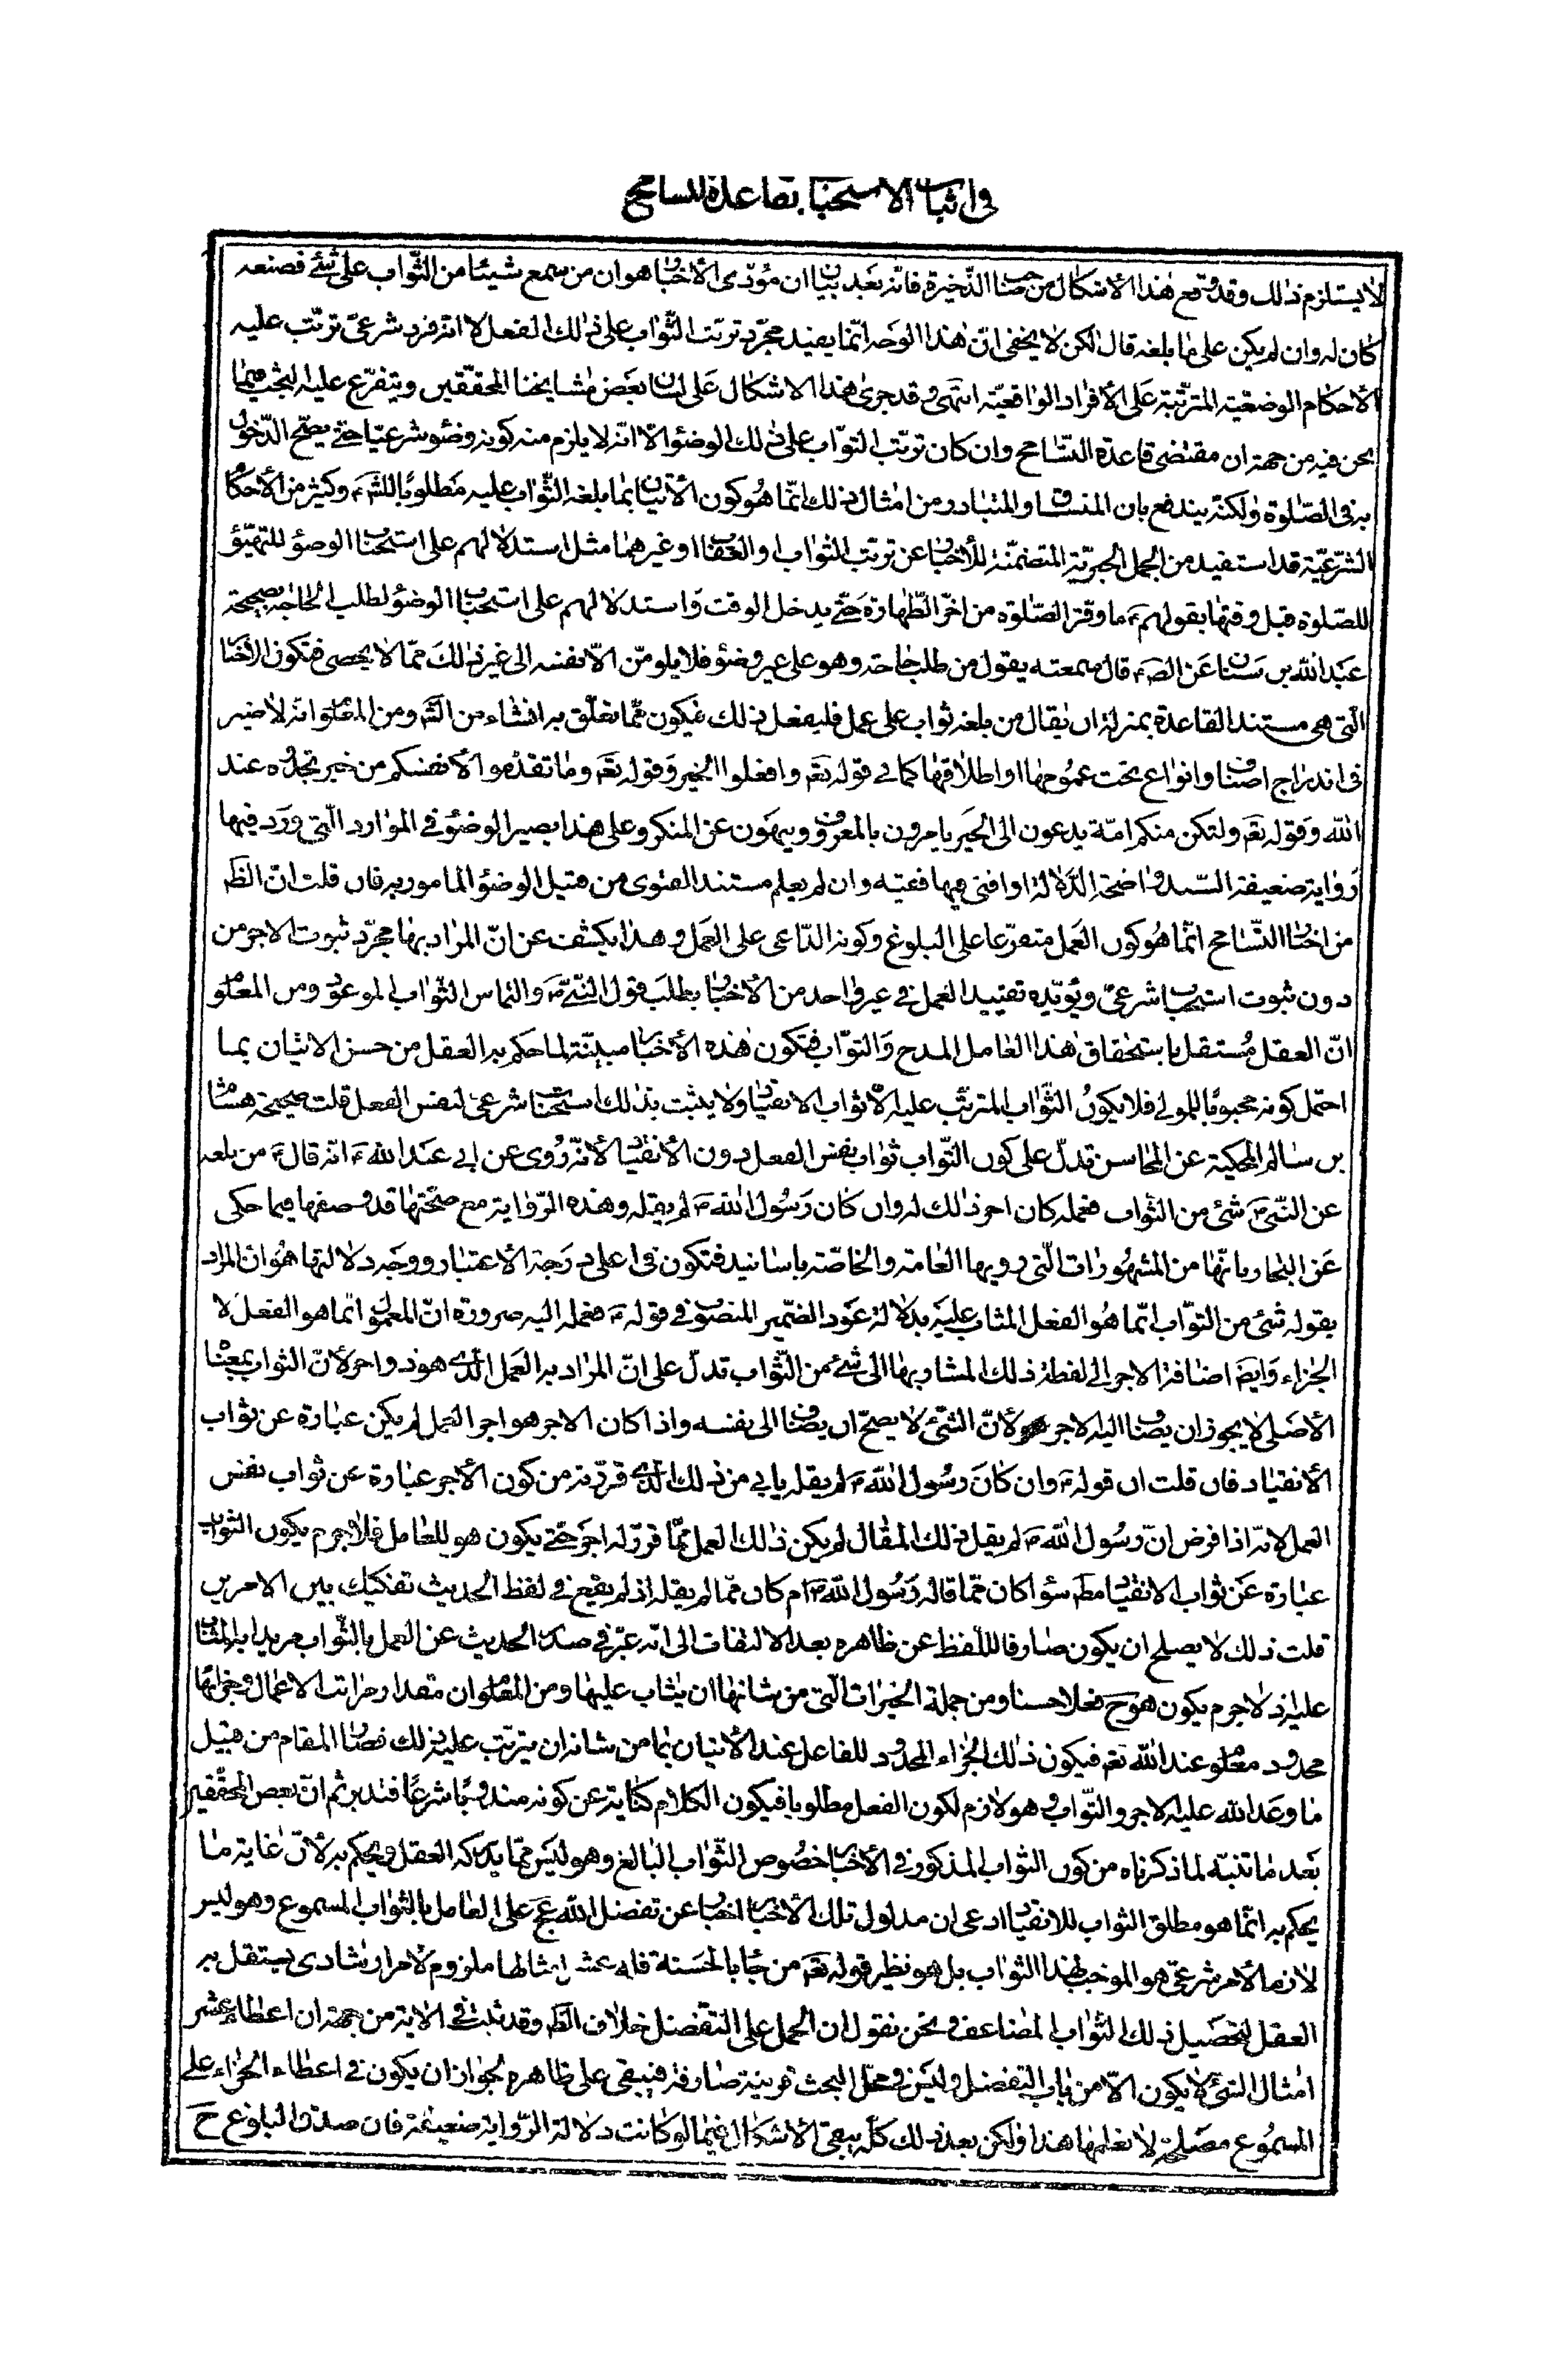 في اثبات الاستحباب بقاعدة التسامح
لا يستلزم ذلك وقد وقع هذا الأشكال من صاحب الذّخيرة فانّه بعد بيان ان مؤدّى الأخبار هو ان من سمع شيئا من الثّواب على شئ فصنعه
كان له وان لم يكن على ما بلغه قال لكن لا يخفى انّ هذا الوجه انّما يفيد مجرّد ترتّب الثّواب على ذلك الفعل لا انّه فرد شرعىّ ترتّب عليه
الأحكام الوضعيّة المترتّبة على الأفراد الواقعيّة انتهى وقد جرى هذا الاشكال على لسان بعض مشايخنا المحقّقين ويتفرّع عليه البحث فيما
نحن فيه من جهة ان مقتضى قاعدة التّسامح وان كان ترتّب الثوّاب على ذلك الوضوء الّا انّه لا يلزم منه كونه وضوء شرعيّا حتّى يصحّ الدّخول
به في الصّلوة ولكنّه يندفع بان المنساق والمتبادر من امثال ذلك انّما هو كون الأتيان بما بلغه الثّواب عليه مطلوبًا للشّرع وكثير من الأحكام
الشّرعيّة قد استفيد من الجمل الخبريّة المتضمّنة للأخبار عن ترتّب الثواب والعقاب او غيرهما مثل استدلالهم على استحباب الوضوء للتهيّؤ
للصّلوة قبل وقتها بقولهم ع ما وقّر الصّلوة من اخّر الطّهارة حتّى يدخل الوقت واستدلالهم على استحباب الوضوء لطلب الحاجة بصحيحة
عبد الله بن سنان عن الصّ ع قال سمعته يقول من طلب حاجة وهو على غير وضوء فلا يلومنّ الّا نفسه الى غير ذلك ممّا لا يحصى فتكون الأخبار
الّتى هى مستند القاعدة بمنزلة ان يقال من بلغه ثواب على عمل فليفعل ذلك فيكون ممّا تعلّق به انشاء من الشّرع ومن المعلوم انّه لا ضير
في اندراج اصناف وانواع تحت عمومها او اطلاقها كما في قوله تع وافعلوا الخير وقوله تع وما تقدّموا لأنفسكم من خير تجدوه عند
الله وقوله تع ولتكن منكم امّة يدعون الى الخير يامرون بالمعروف وينهون عن المنكر وعلى هذا يصير الوضوء في الموارد الّتى ورد فيها
رواية ضعيفة السّند واضحة الدّلالة او افتى فيها فقيه وان لم يعلم مستند الفتوى من قبيل الوضوء المامور به فان قلت انّ الظّ
من اخبار التّسامح انّما هو كون العمل متفرّعا على البلوغ وكونه الدّاعى على العمل وهذا يكشف عن انّ المراد بها مجرّد ثبوت الاجر من
دون ثبوت استحباب شرعىّ ويؤيّده تقييد العمل في غير واحد من الأخبار بطلب قول النّبىّ ص والتماس الثّواب الموعود ومن المعلوم
انّ العقل مستقل باستحقاق هذا العامل المدح والثوّاب فتكون هذه الأخبار مبيّنة لما حكم به العقل من حسن الاتيان بما
احتمل كونه محبوبًا للمولى فلا يكون الثّواب المترتّب عليه الّا ثواب الانقياد ولا يثبت بذلك استحباب شرعىّ لنفس الفعل قلت صحيحة هشام
بن سالم المحكية عن المحاسن تدلّ على كون الثّواب ثواب نفس الفعل دون الأنقياد لأنّه روى عن ابى عبد الله ع انّه قال ع من بلغه
عن النّبىّ ص شئ من الثّواب فعمله كان اجر ذلك له وان كان رسول الله ص لم يقله وهذه الرّواية مع صحّتها قد وصفها فيما حكى
عن البحار بانّها من المشهورات الّتى رويها العامّة والخاصّة باسانيد فتكون في اعلى درجة الأعتبار ووجه دلالتها هو انّ المراد
بقوله شئ من الثوّاب انّما هو الفعل المثاب عليه بدلالة عود الضّمير المنصوب في قوله ع فعمله اليه ضرورة انّ المعمول انّما هو الفعل لا
الجزاء وايضا اضافة الاجر الى لفظة ذلك المشار بها الى شئ من الثّواب تدلّ على انّ المراد به العمل الّذى هو ذو اجر لأنّ الثواب بمعناه
الأصلى لا يجوز ان يضاف اليه الاجر لأنّ الشّئ لا يصحّ ان يضاف الى نفسه واذا كان الاجر هو اجر العمل لم يكن عبارة عن ثواب
الأنقياد فان قلت ان قوله ع وان كان رسول الله ص لم يقله يابى من ذلك الّذى قرّرته من كون الأجر عبارة عن ثواب نفس
العمل لانّه اذا فرض انّ رسول الله ص لم يقل ذلك المقال لم يكن ذلك العمل ممّا قرّر له اجر حتّى يكون هو للعامل فلا جرم يكون الثواب
عبارة عن ثواب الانقياد مطم سواء كان ممّا قاله رسول الله ص ام كان ممّا لم يقله اذ لم يقع في لفظ الحديث تفكيك بين الامرين
قلت ذلك لا يصلح ان يكون صارفا للّفظ عن ظاهره بعد الالتفات الى انّه عبّر في صدر الحديث عن العمل بالثّواب مريدا به المثاب
عليه اذ لا جرم يكون هو ح فعلا حسنا ومن جملة الخيرات الّتى من شانها ان يثاب عليها ومن المعلوم ان مقدار مراتب الاعمال وجزائها
محدود معلوم عند الله تع فيكون ذلك الجزاء المحدود للفاعل عند الأتيان بما من شانه ان يترتّب عليه ذلك فصار المقام من قبيل
ما وعد الله عليه الاجر والثّواب وهو لازم لكون الفعل مطلوبا فيكون الكلام كناية عن كونه مندوبًا شرعًا فتدبر ثم انّ بعض المحقّقين
بعد ما تنبّه لما ذكرناه من كون الثواب المذكور في الأخبار خصوص الثّواب البالغ وهو ليس ممّا يدركه العقل ويحكم به لأنّ غاية ما
يحكم به انّما هو مطلق الثواب للانقياد ادعى ان مدلول تلك الأخبار اخبار عن تفضل الله عج على العامل بالثواب المسموع وهو ليس
لازما لأمر شرعىّ هو الموجب لهذا الثواب بل هو نظير قوله تع من جاء بالحسنة فله عشر امثالها ملزوم لأمر ارشادى يستقل به
العقل لتحصيل ذلك الثّواب المضاعف ونحن نقول ان الحمل على التفضل خلاف الظّ وقد ثبت في الاية من جهة ان اعطاء عشر
امثال الشئ لا يكون الّا من باب التفضل وليس في محلّ البحث قرينة صارفة فيبقى على ظاهره لجواز ان يكون في اعطاء الجزاء على
المسموع مصلحة لا نعلمها هذا ولكن بعد ذلك كلّه يبقى الأشكال فيما لو كانت دلالة الرّواية ضعيفة فان صدق البلوغ ح